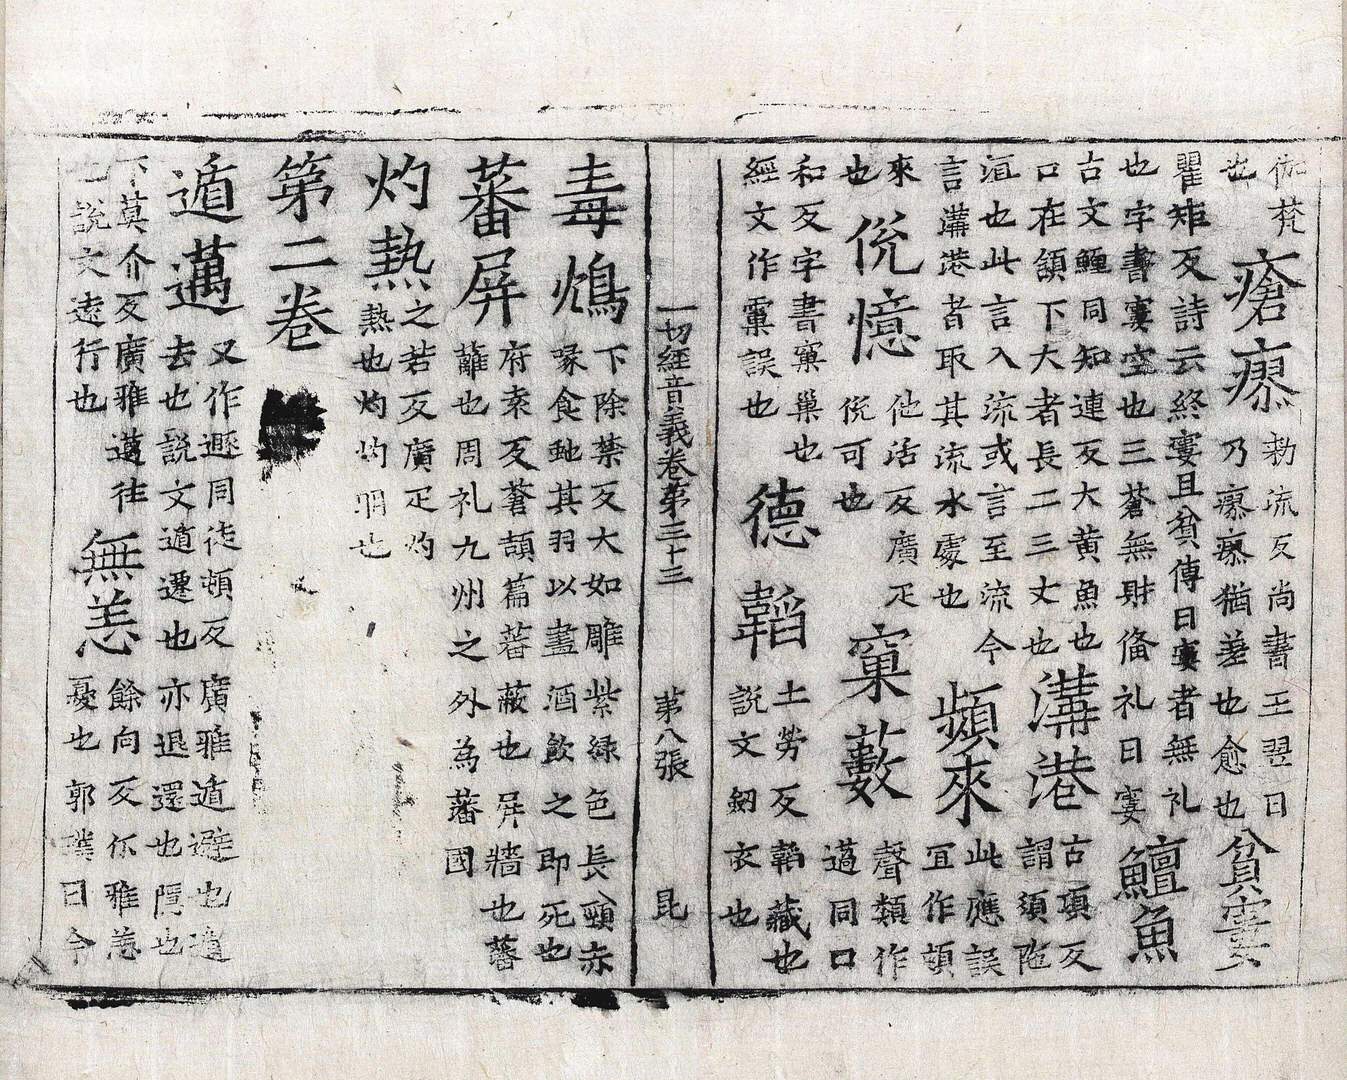 伽梵也瘡瘳勑流反尚書王翌日乃瘳瘳猶差也愈也貧寠
瞿矩反詩云終寠且貧傳曰寠者無礼也字書寠空也三蒼無財俻礼曰寠鱣魚
古文鱓同知連反大黄魚也口在頷下大者長二三丈也溝港古項反謂須陁
洹也此言入流或言至流今言溝港者取其流水處也頻來此應誤冝作頓
來也侻憶他活反廣疋侻可也窠藪聲類作薖同口
和反字書窠巢也經文作窼誤也德韜土劳反韜藏也説文劒衣也
一切經音義卷第三十三 第八張 昆
毒鴆下除禁反大如雕紫緑色長頸赤喙食虵其羽以畫酒飲之即死也
蕃屏府袁反蒼頡篇蕃蔽也屏牆也蕃蘺也周礼九州之外為蕃國
灼熱之若反廣疋灼熱也灼灼明也
第二卷
遁邁又作遯同徒頓反廣雅遁避也遁去也説文遁遷也亦退還也隱也
下莫介反廣雅邁往也説文遠行也無恙餘向反尒雅恙憂也郭璞曰今